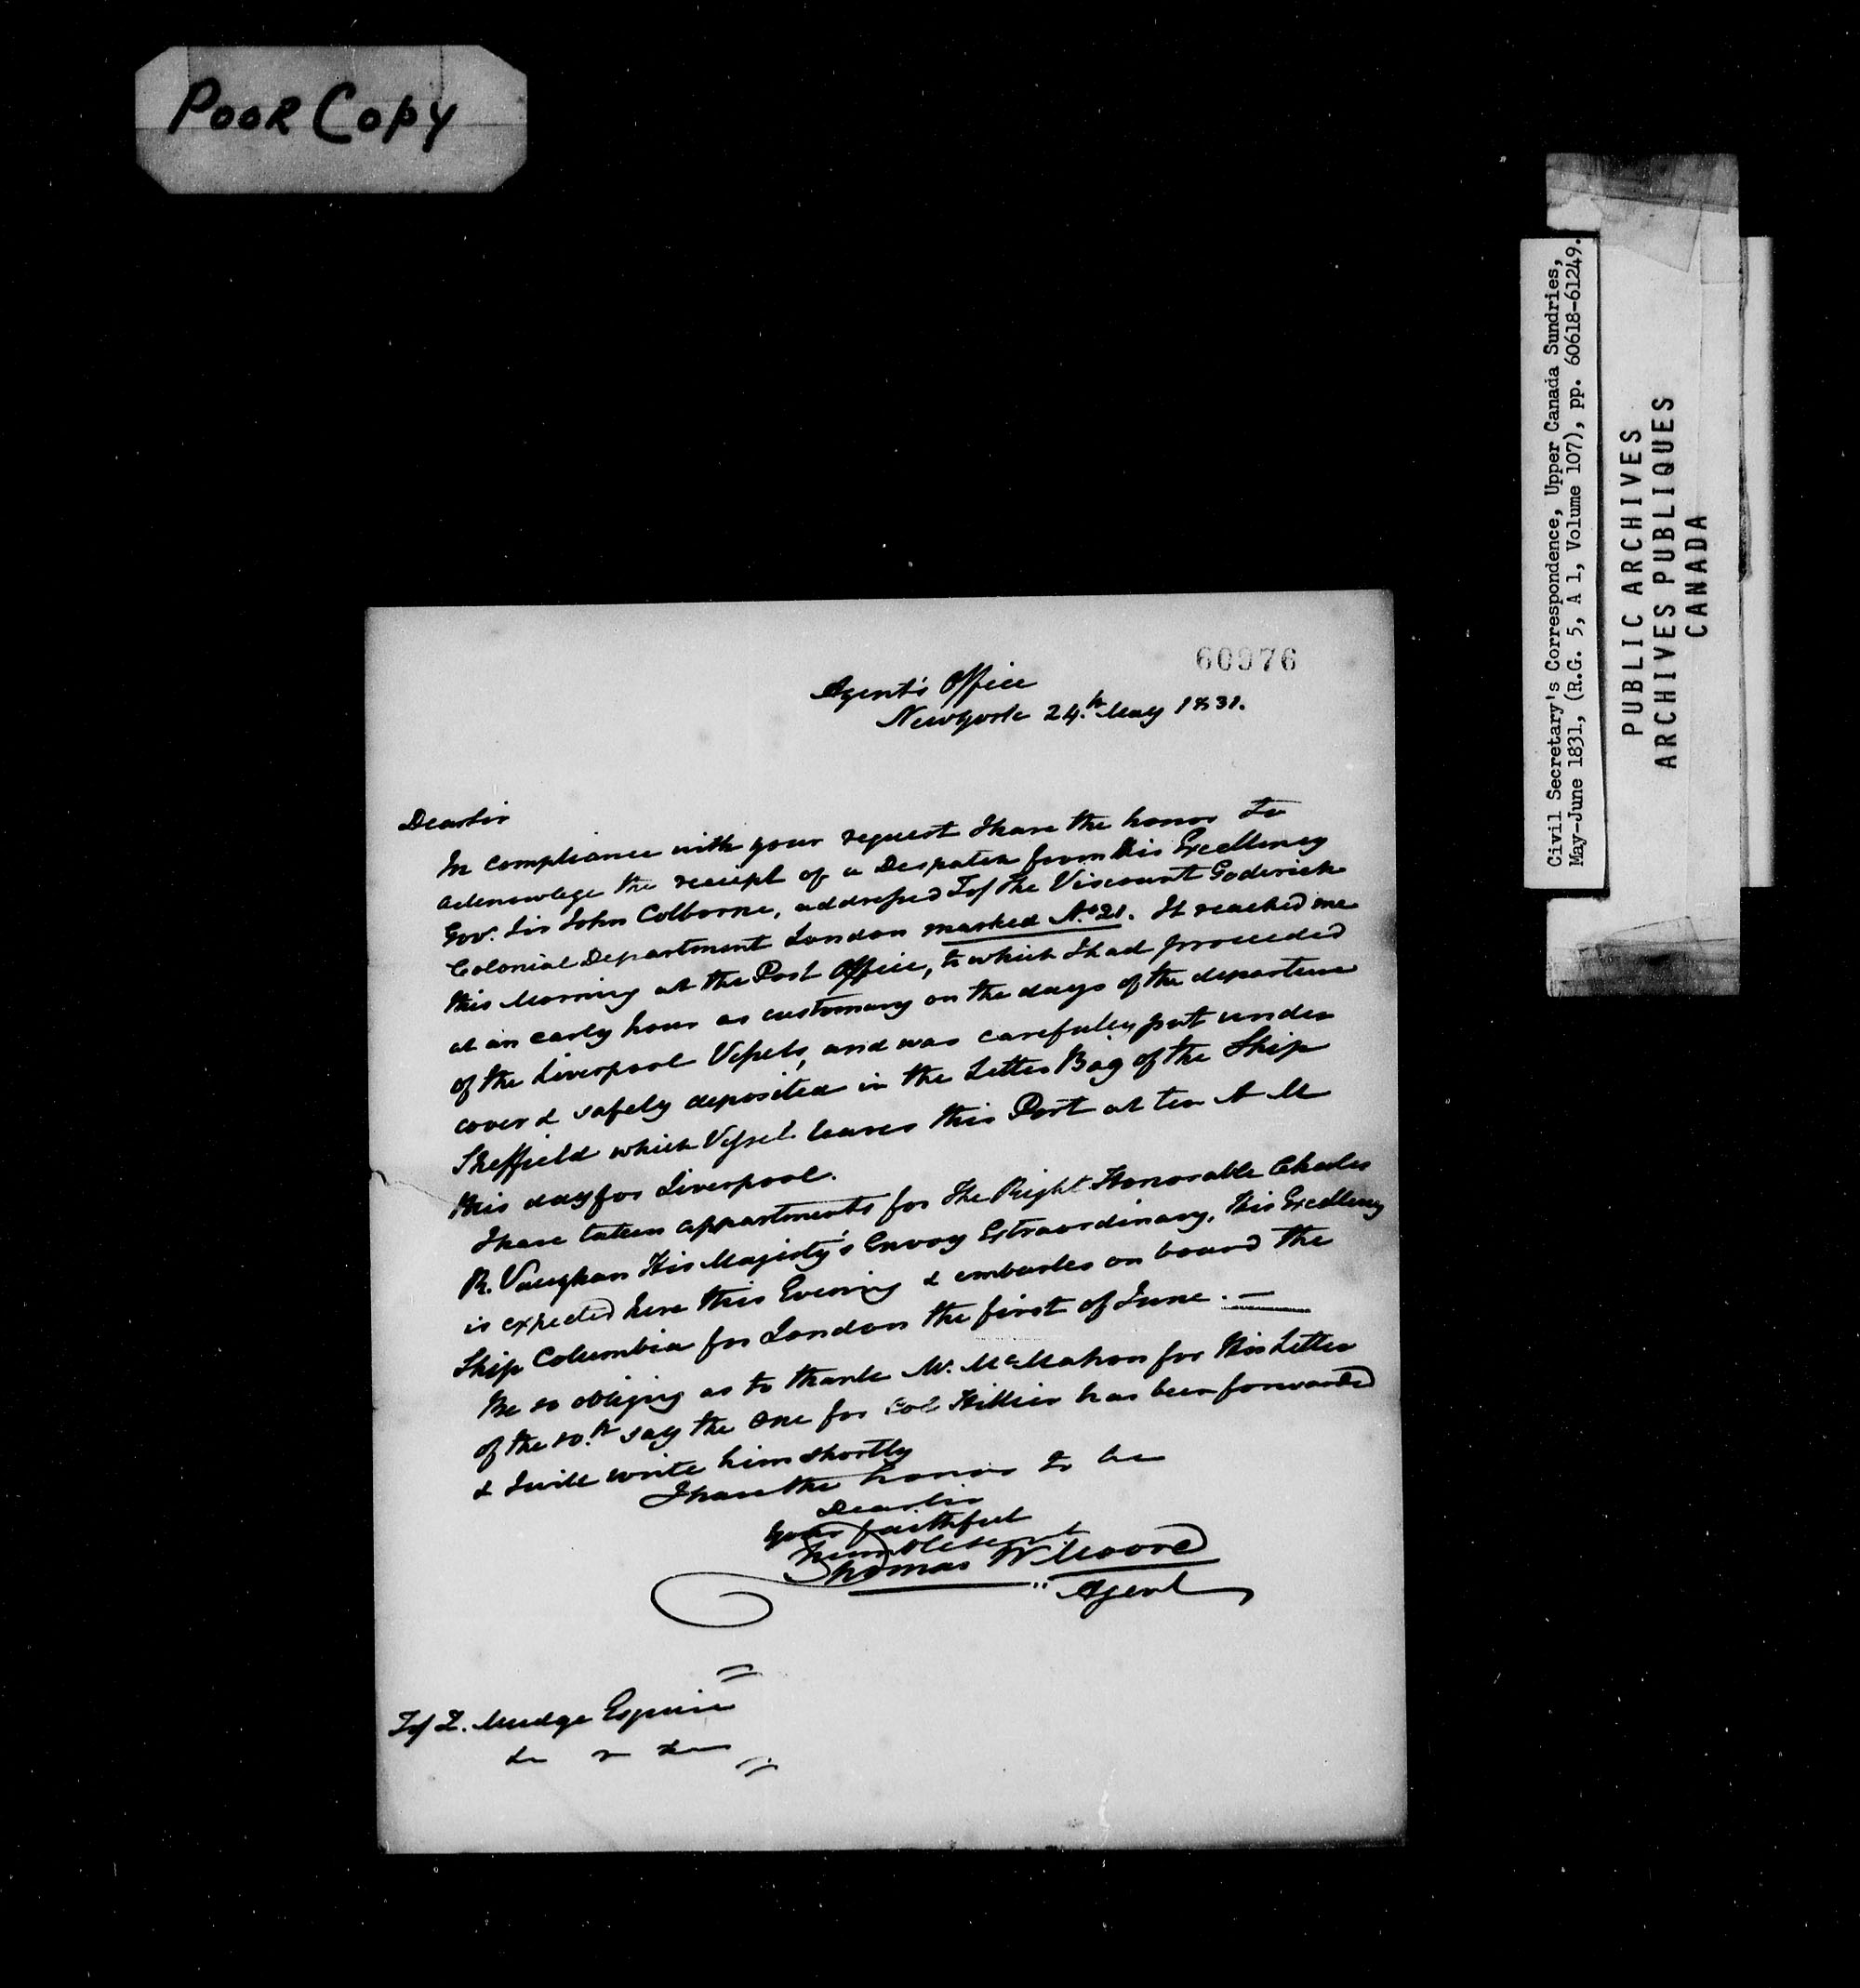 POOR COPY
60976
Agent's Office
New York 24th. May 1831.
Dear Sir
In compliance with your request I have the honor to
acknowlege the receipt of a Despatch from His Excellency
Gov. Sir John Colborne, addressed To/ The Viscount Goderich
Colonial Department London marked No. 21. It reached me
this Morning at the Post Office, to which I had proceeded
at an early hour as customary on the days of the departure
of the Liverpool Vessels, and was carefully put under
cover & safely deposited in the Letter Bag of the Ship
Sheffield which Vessel leaves this Port at ten A M
this day for Liverpool.
I have taken appartments for The Right Honorable Charles
R. Vaughan His Majesty's Envoy Extraordinary, His Excellency
is expected here this Evening & embarks on board the
Ship Columbia for London the first of June.—
Be so obliging as to thank Mr. McMahon for His Letter
of the 10th. say the one for Col Hillier has been forwarded
& I will write him shortly
I have the honor to be
Dear Sir
Your faithful
humble Servt
Thomas W Moore
Agent
To/ Z. Mudge Esquire
&c &c &c
Civil Secretary's Correspondence, Upper Canada Sundries,
May-June 1831, (R.G. 5, A 1, Volume 107), pp. 60618-61249.
PUBLIC ARCHIVES
ARCHIVES PUBLIQUES
CANADA